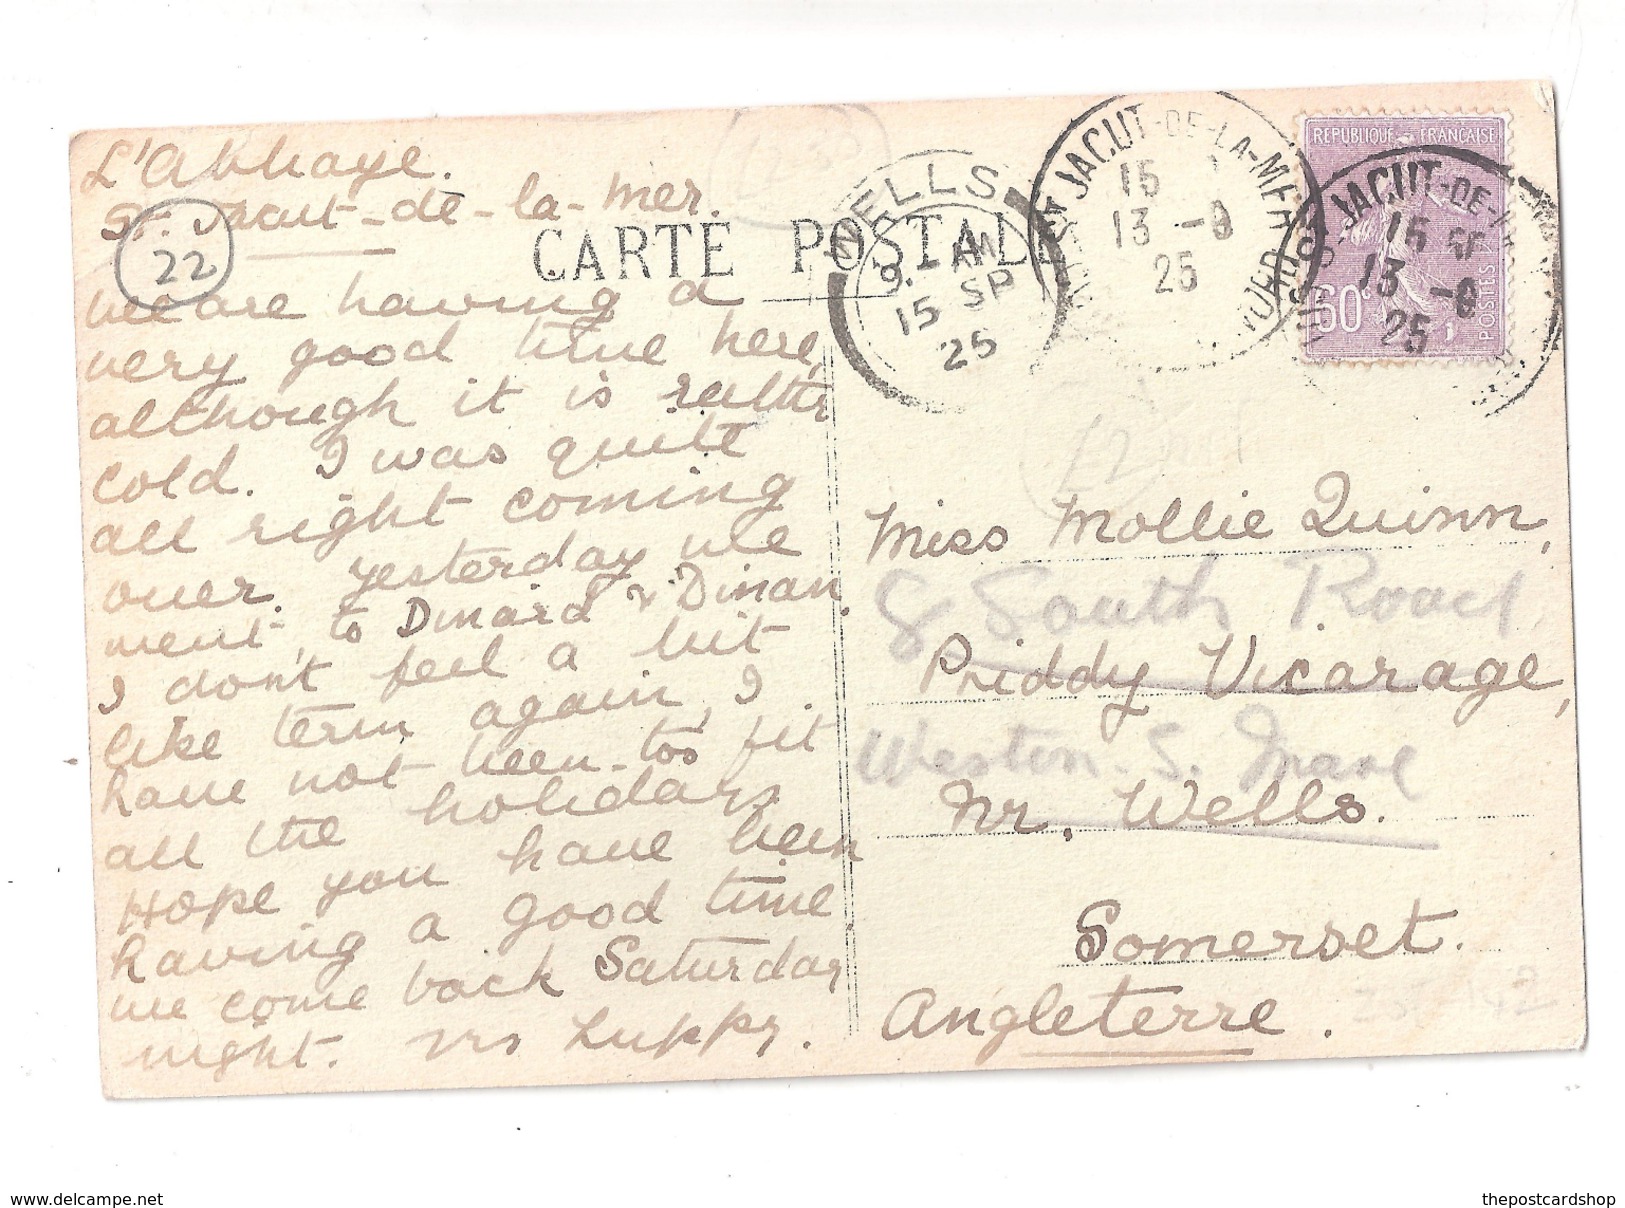 L'Abbaye.
St. Jacut-de-la-Mer.
22
CARTE POSTALE
WELLS
9. AM
15 SP
25
ST JACUT-DE-LA-MER
15
13 -9
25
JACUT-DE-LA
15
13 -9
25
REPUBLIQUE FRANÇAISE
60c
POSTES
we are having a
very good time here,
although it is rather
cold. I was quite
all right coming
over. Yesterday we
went to Dinard & Dinan.
I don't feel a bit
like term again, I
have not been too fit
all the holidays
Hope you have been
having a good time
we come back Saturday
night.
Miss Mollie Quinn,
8 South Road
Priddy Vicarage,
Weston-S. Mare
Nr. Wells.
Somerset.
Angleterre.
www.delcampe.net
thepostcardshop